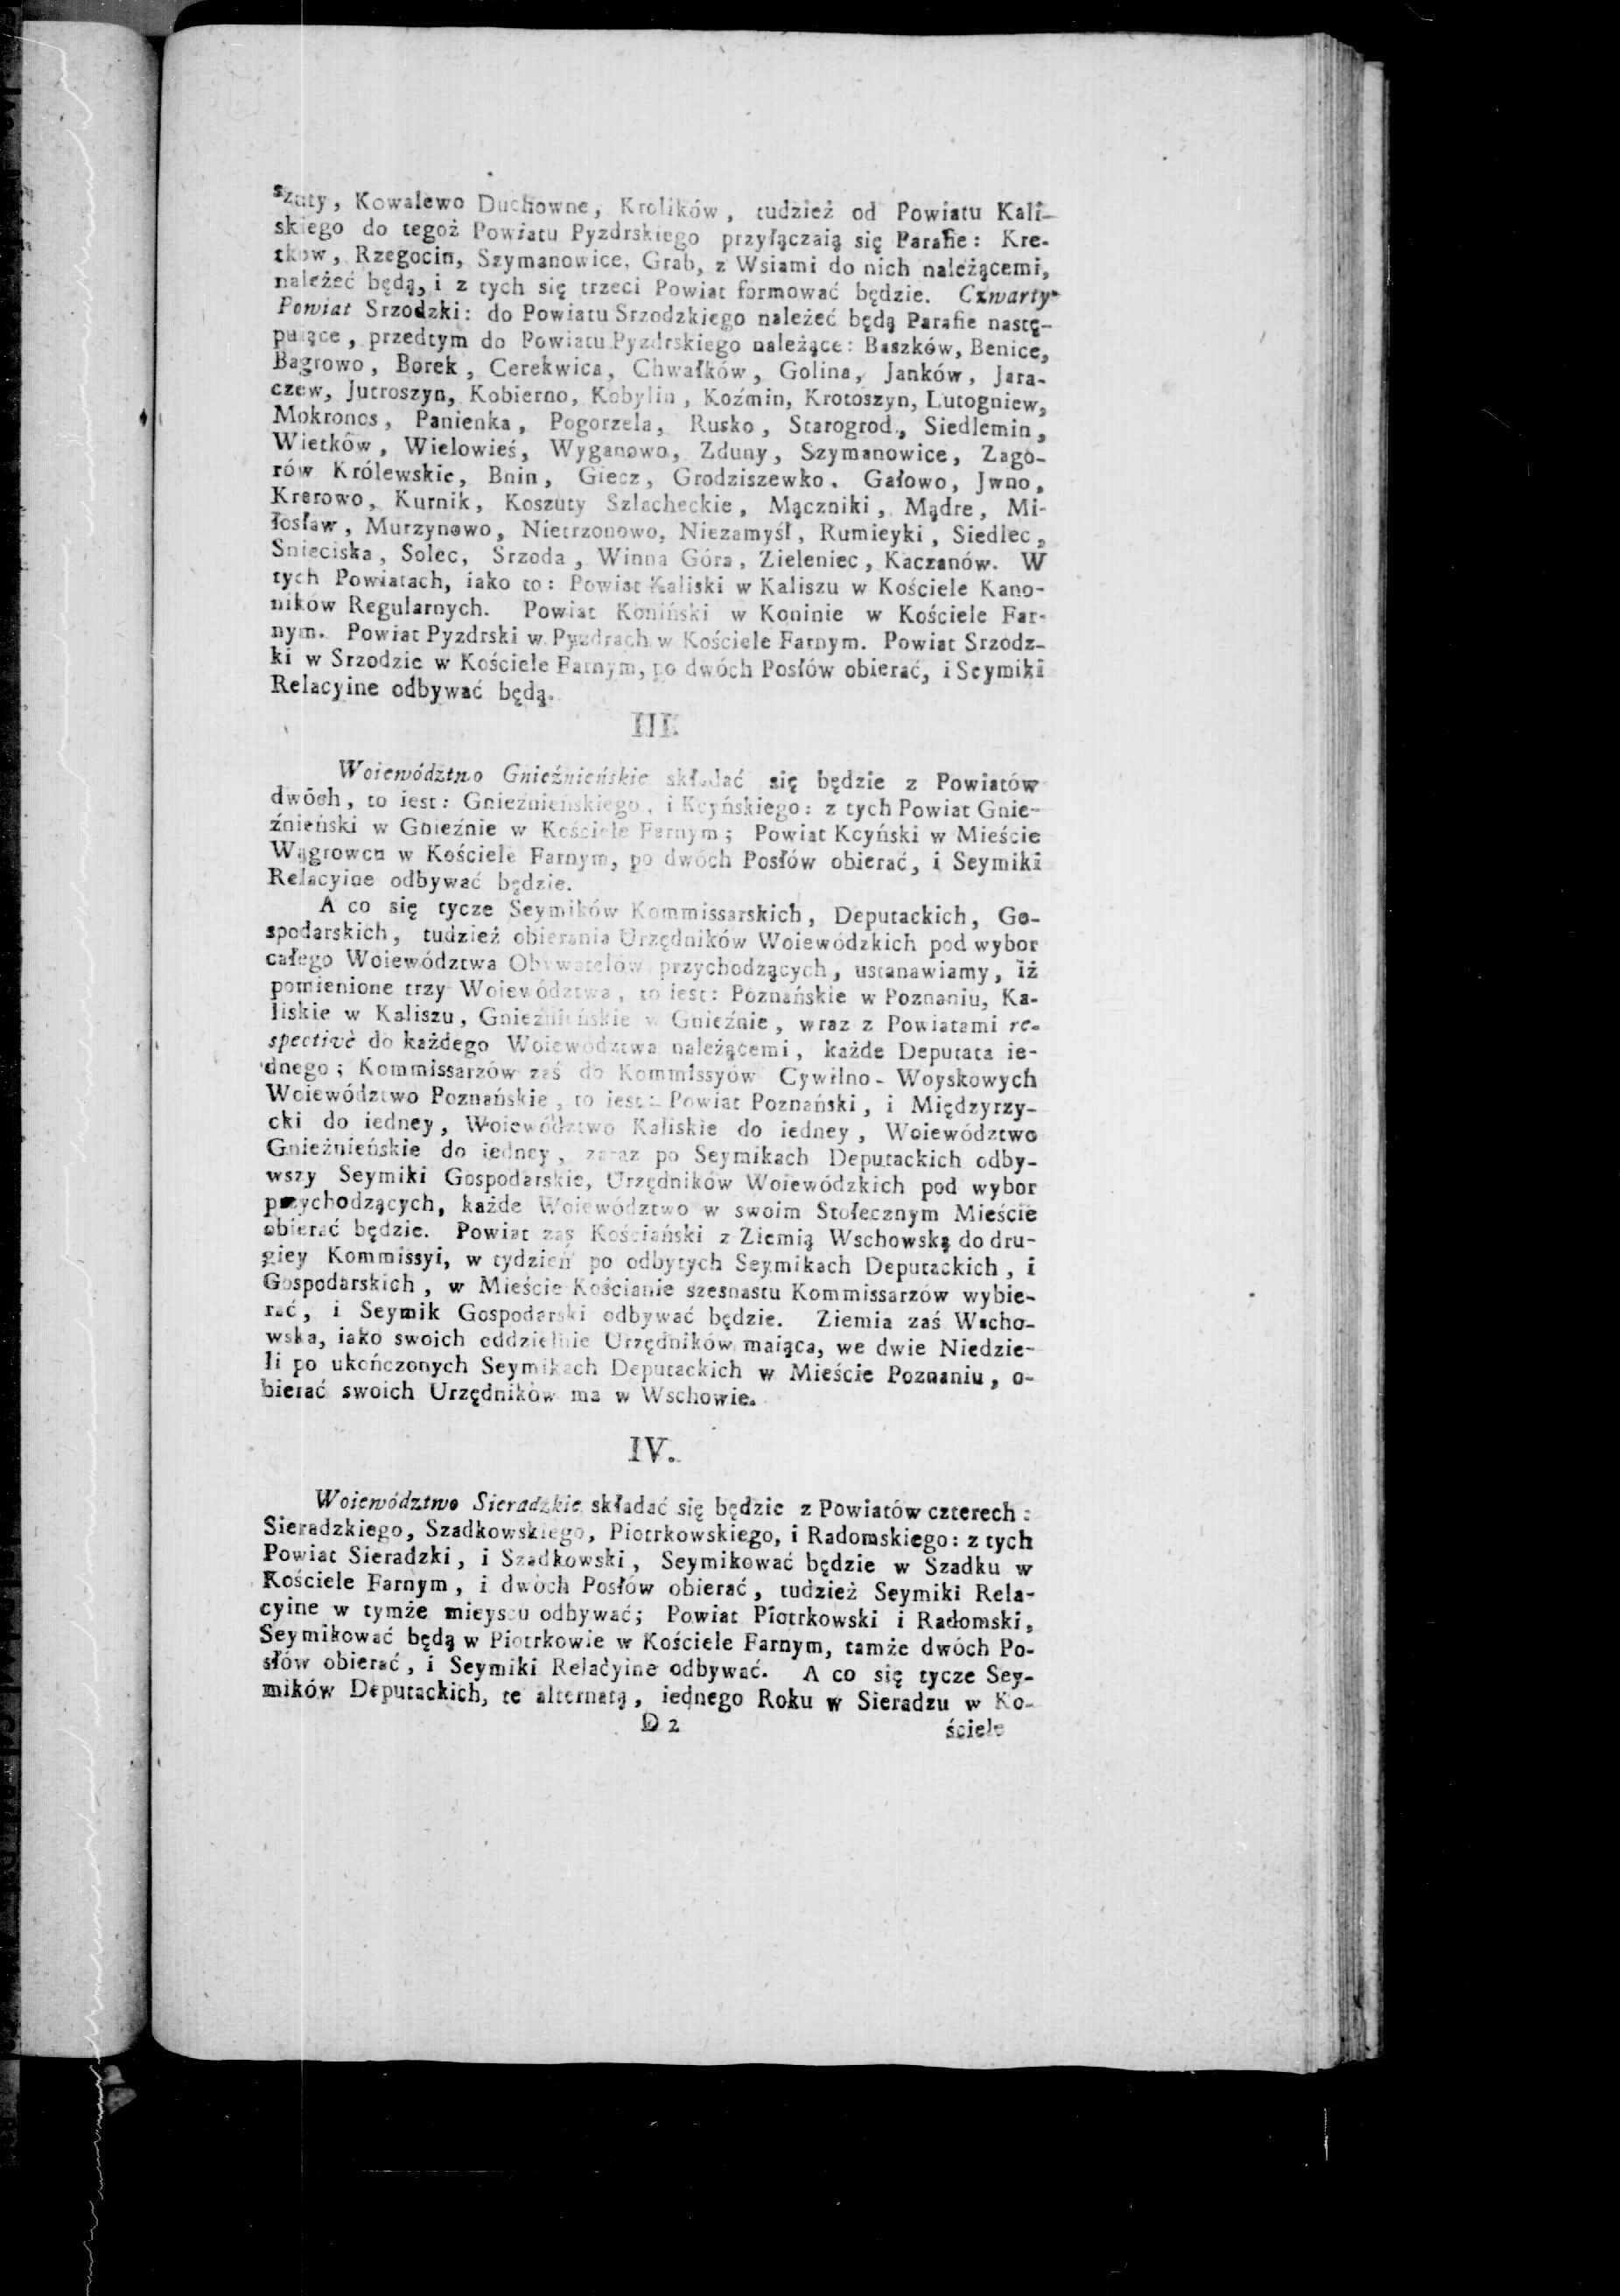 szuty, Kowalewo Duchowne, Krolików, tudzież od Powiatu Kali-
skiego do tegoż Powiatu Pyzdrskiego przyłączaią się Parafie: Kre-
tkow, Rzegocin, Szymanowice, Grab, z Wsiami do nich należącemi,
należeć będą, i z tych się trzeci Powiat formować będzie. Czwarty
Powiat Srzodzki: do Powiatu Srzodzkiego należeć będą Parafie nastę-
puiące, przedtym do Powiatu Pyzdrskiego należące: Baszków, Benice,
Bagrowo, Borek, Cerekwica, Chwałków, Golina, Janków, Jara-
czew, Jutroszyn, Kobierno, Kobylin, Koźmin, Krotoszyn, Lutogniew,
Mokronos, Panienka, Pogorzela, Rusko, Starogrod, Siedlemin,
Wietków, Wielowieś, Wyganowo, Zduny, Szymanowice, Zago-
rów Królewskie, Bnin, Giecz, Grodziszewko, Gałowo, Jwno,
Krerowo, Kurnik, Koszuty Szlacheckie, Mączniki, Mądre, Mi-
łosław, Murzynowo, Nietrzonowo, Niezamyśl, Rumieyki, Siedlec,
Snieciska, Solec, Srzoda, Winna Góra, Zieleniec, Kaczanów. W
tych Powiatach, iako to: Powiat Kaliski w Kaliszu w Kościele Kano-
ników Regularnych. Powiat Koniński w Koninie w Kościele Far-
nym. Powiat Pyzdrski w Pyzdrach w Kościele Farnym. Powiat Srzodz-
ki w Srzodzie w Kościele Farnym, po dwóch Posłów obierać, i Seymiki
Relacyine odbywać będą.
III.
Woiewództwo Gnieźnieńskie składać się będzie z Powiatów
dwóch, to iest: Gnieźnieńskiego, i Kcyńskiego: z tych Powiat Gnie-
źnieński w Gnieźnie w Kościele Farnym; Powiat Kcyński w Mieście
Wągrowcu w Kościele Farnym, po dwóch Posłów obierać, i Seymiki
Relacyine odbywać będzie.
A co się tycze Seymików Kommissarskich, Deputackich, Go-
spodarskich, tudzież obierania Urzędników Woiewódzkich pod wybor
całego Woiewództwa Obywatelów przychodzących, ustanawiamy, iż
pomienione trzy Woiewództwa, to iest: Poznańskie w Poznaniu, Ka-
liskie w Kaliszu, Gnieźnieńskie w Gnieźnie, wraz z Powiatami re-
spectivè do każdego Woiewodztwa należącemi, każde Deputata ie-
dnego; Kommissarzów zaś do Kommissyów Cywilno-Woyskowych
Woiewództwo Poznańskie, to iest: Powiat Poznański, i Międzyrzy-
cki do iedney, Woiewództwo Kaliskie do iedney, Woiewództwo
Gnieźnieńskie do iedney, zaraz po Seymikach Deputackich odby-
wszy Seymiki Gospodarskie, Urzędników Woiewódzkich pod wybor
przychodzących, każde Woiewództwo w swoim Stołecznym Mieście
obierać będzie. Powiat zaś Kościański z Ziemią Wschowską do dru-
giey Kommissyi, w tydzień po odbytych Seymikach Deputackich, i
Gospodarskich, w Mieście Kościanie szesnastu Kommissarzów wybie-
rać, i Seymik Gospodarski odbywać będzie. Ziemia zaś Wscho-
wska, iako swoich oddzielnie Urzędników maiąca, we dwie Niedzie-
li po ukończonych Seymikach Deputackich w Mieście Poznaniu, o-
bierać swoich Urzędników ma w Wschowie.
IV.
Woiewództwo Sieradzkie składać się będzie z Powiatów czterech:
Sieradzkiego, Szadkowskiego, Piotrkowskiego, i Radomskiego: z tych
Powiat Sieradzki, i Szadkowski, Seymikować będzie w Szadku w
Kościele Farnym, i dwóch Posłów obierać, tudzież Seymiki Rela-
cyine w tymże mieyscu odbywać; Powiat Piotrkowski i Radomski,
Seymikować będą w Piotrkowie w Kościele Farnym, tamże dwóch Po-
słów obierać, i Seymiki Relacyine odbywać. A co się tycze Sey-
mików Deputackich, te alternatą, iednego Roku w Sieradzu w Ko-
D 2 ściele